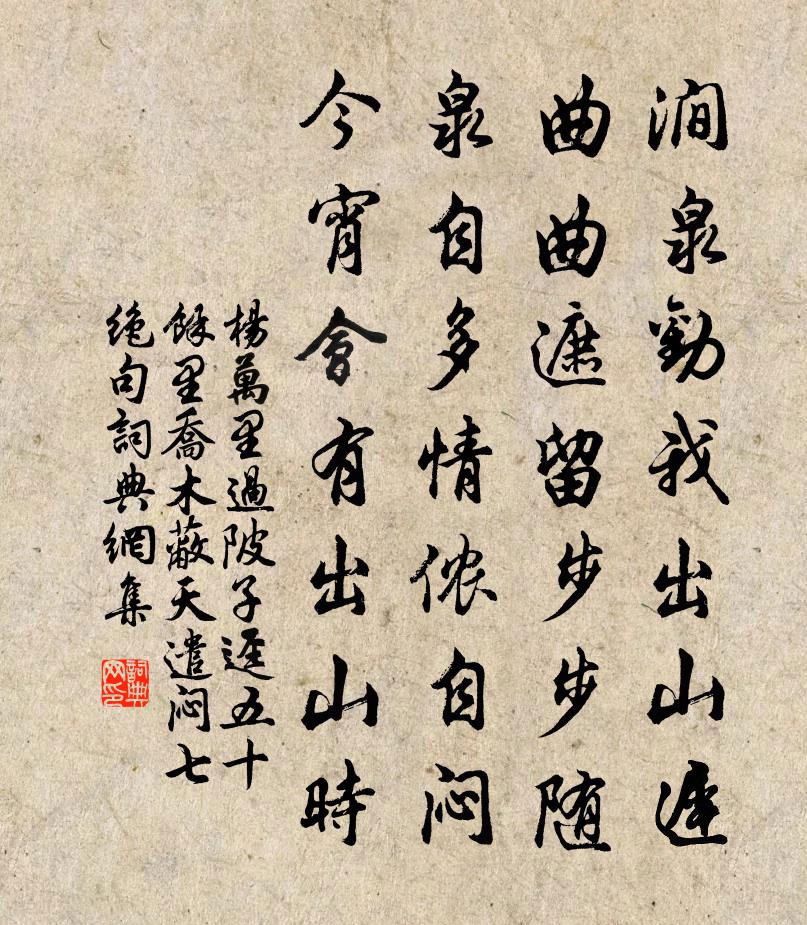 澗泉勸我出山遲
曲曲遮留步步随
泉自多情侬自闷
今宵會有出山時
楊萬里過陂子逕五十
餘里喬木蔽天遣闷七
絶句詞典網集
詞典
网印